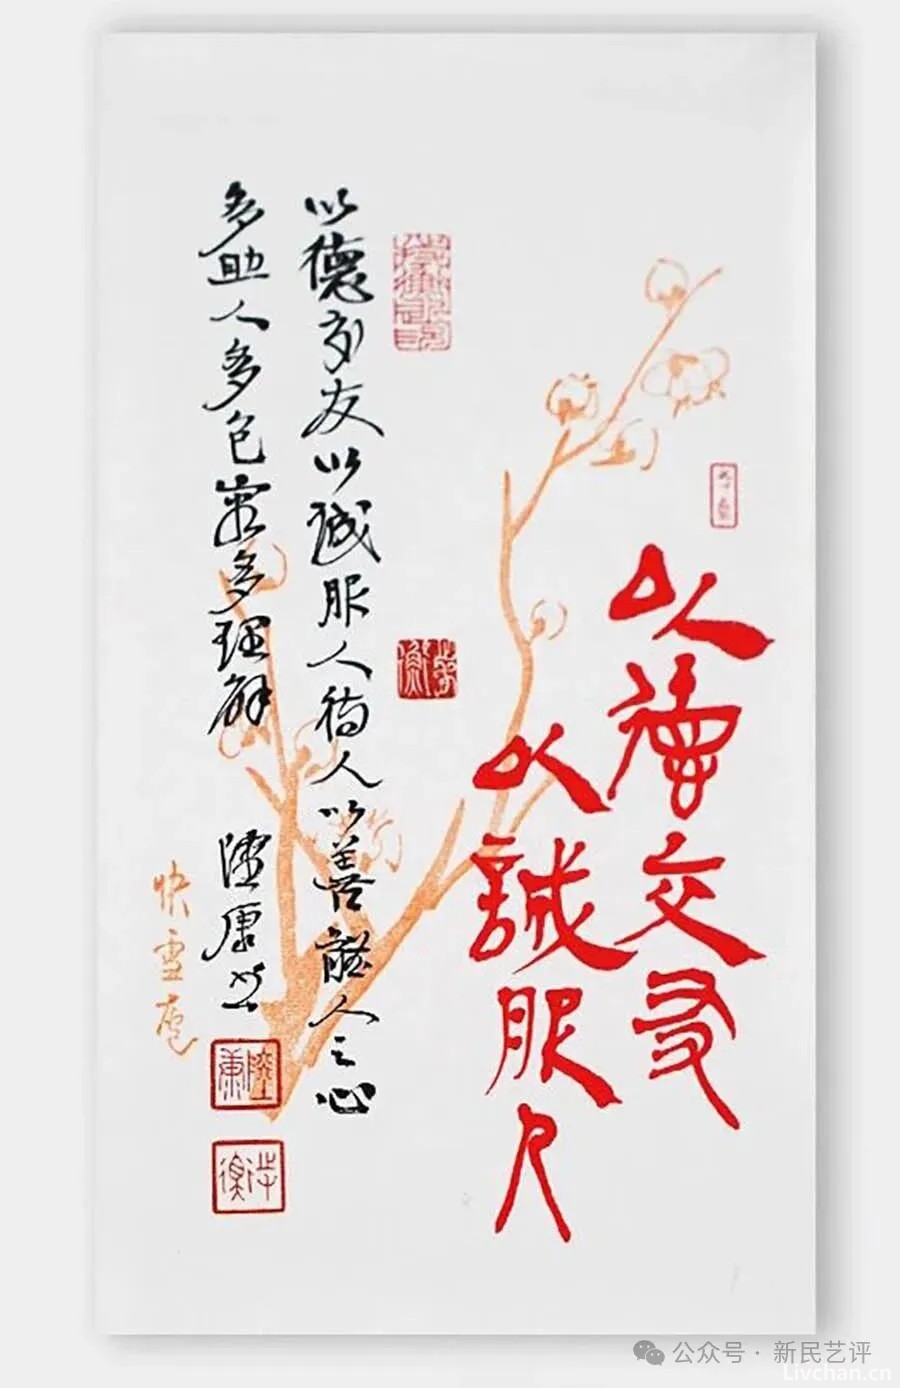 以德交友
以誠服人
以德交友以誠服人待人以善體人之心
多助人多包容多理解 陸康
陸康
快雪廬
公众号 · 新民艺评
Livchan.cn